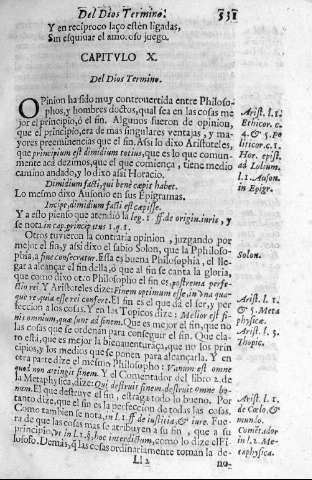 Del Dios Termino. 531
Y en reciproco laço estèn ligadas,
Sin esquiuar el amoroso juego.
CAPITVLO X.
Del Dios Termino.
OPinion ha sido muy controuertida entre Philoso-
phos, y hombres doctos, qual sea en las cosas me
jor el principio, ò el fin. Algunos fueron de opinion,
que el principio, era de mas singulares ventajas, y ma-
yores preeminencias que el fin. Assi lo dixo Aristoteles,
que principium est dimidium totius, que es lo que comun-
mente acà dezimos, que el que comiença, tiene medio
camino andado, y lo dixo assi Horacio.
Dimidium facti, qui bene capit habet.
Lo mesmo dixo Ausonio en sus Epigramas.
Incipe, dimidium facti est capisse.
Y a esto pienso que atendiò la leg. 1. ff. de origin. iuris, y
se nota in cap. principius 1. q. 1.
Otros tuuieron la contraria opinion, juzgando por
mejor el fin, y assi dixo el sabio Solon, que la Philoso-
phia, a fine consecratur. Esta es buena Philosophia, el lle-
gar a alcançar el fin della, ò que al fin se canta la gloria,
que como dixo otro Philosopho el fin es, postrema perfe-
ctio rei. Y Aristoteles dize: Finem optimum esse, in vna qua-
que re quia esse rei confert. El fin es el que dà el ser, y per
feccion a las cosas. Y en las Topicos dize: Melior est fi-
nis omnium, quæ sunt ad finem. Que es mejor el fin, que no
las cosas que se ordenan para conseguir el fin. Que cla-
ro està, que es mejor la bienauenturaça, que no los prin
cipios, y los medios que se ponen para alcançarla. Y en
otra parte dize el mesmo Philosopho: Vanum est omne
quod non attingit finem. Y el Comentador del libro 2. de
la Metaphysica, dize: Qui destruit finem, destruit omne bo-
num. El que destruye el fin, estraga todo lo bueno. Por
que como el fin es la perfeccion de todas las cosas.
Como tambien se nota, in l. 1. ff. de iustitia, & iure. Fue-
ra de que las cosas mas se atribuyen a su fin, que a su
principio, vt in l. 1. §. hoc interdictum, como lo dize el Fi-
losofo. Demàs, que las cosas ordinariamente toman la de-
Ll 2 no-
Arist. l. 1.
Ethicor. c.
4. & 5. Po
liticor. c. 1.
Hor. epist.
ad Lolium.
l. 1. Auson.
in Epigr.
Solon.
Arist. l. 1.
& 5. Meta
physicæ.
Arist. l. 3.
Thopic.
Arist. l. 1.
de Cœlo, &
mundo.
Comētador
in l. 2. Me-
taphysica.